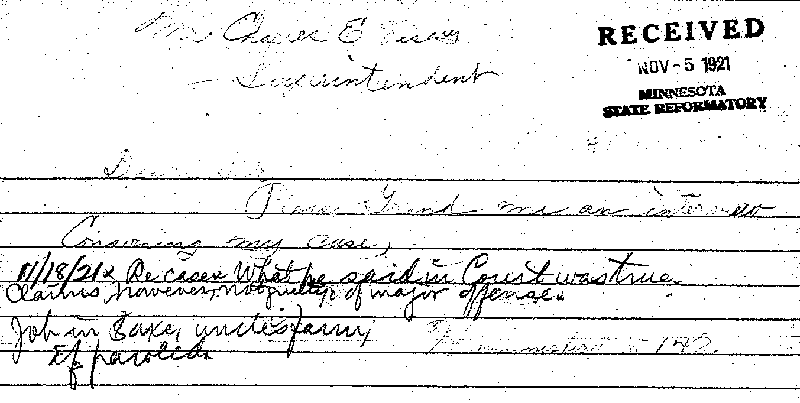 Mr Charles E
RECEIVED
NOV-5 1921
Superintendent
MINNESOTA
STATE REFORMATORY
Dear Sir
Please Grand me an
Conserning my case,
11/18/21 Re case. What he said in Court was true.
Claims, however, not guilty of major offense.
Job in uncle's farm,
If paroled.